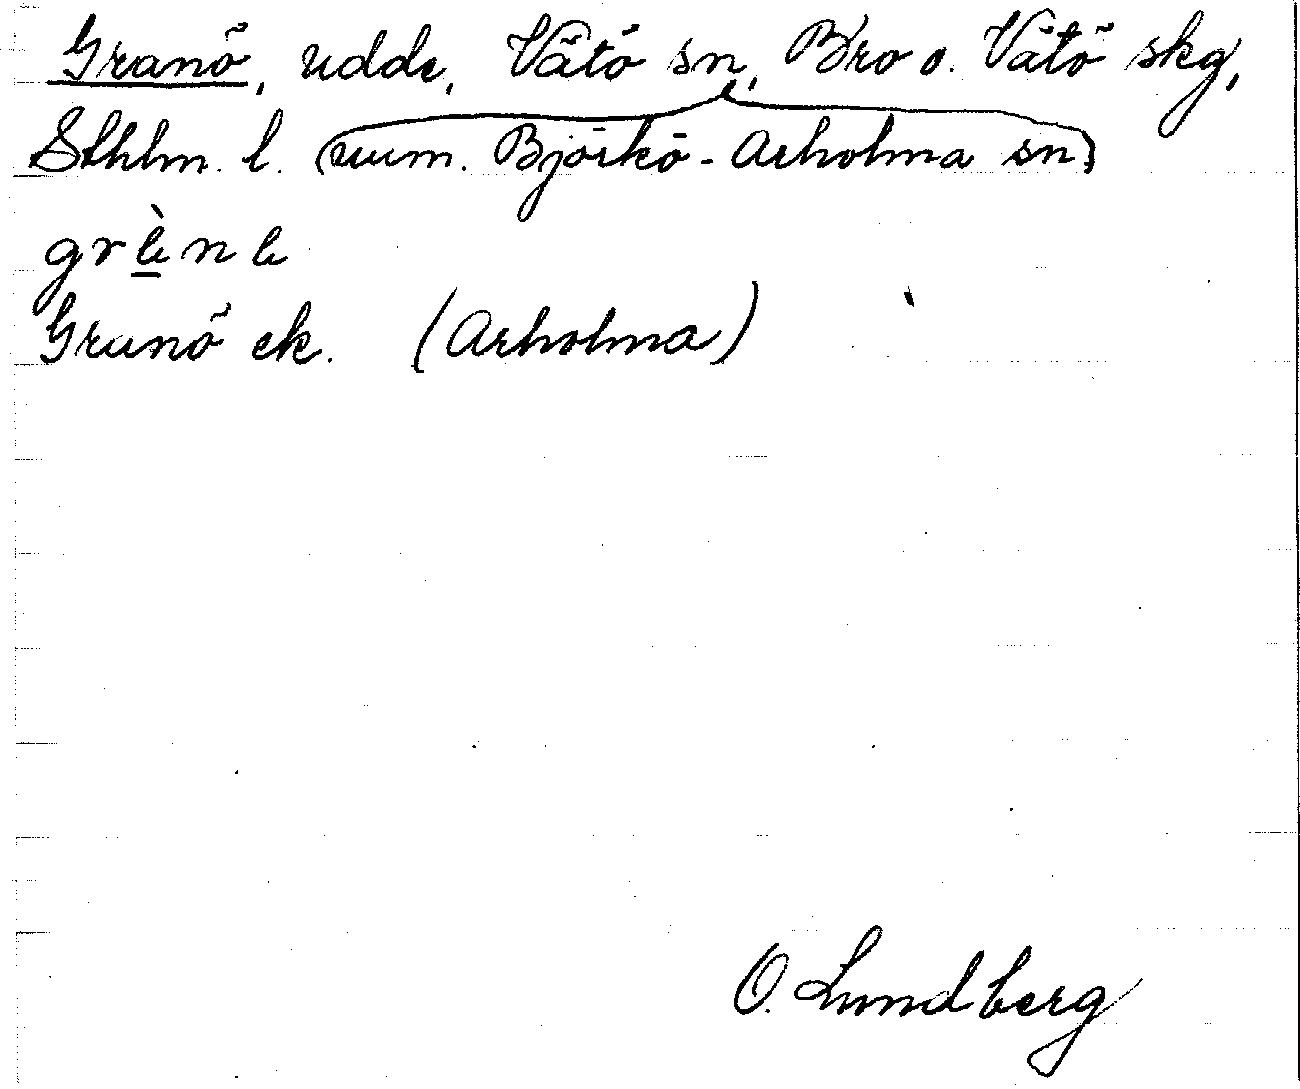 Granö, udde, Vätö sn, Bro o. Vätö skg,
Sthlm. l. (num. Björkö-Arholma sn)
Granö ek. (Arholma)
O. Lundberg